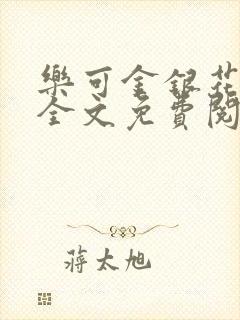 樂可金銀花
全文免費閱
蔣太旭